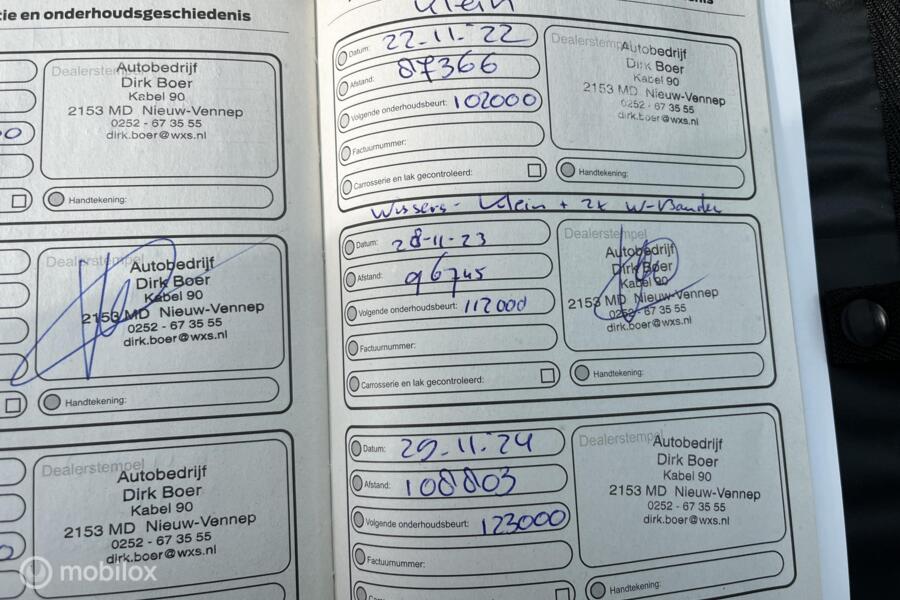 tie en onderhoudsgeschiedenis
Dealerstempel
Autobedrijf
Dirk Boer
Kabel 90
2153 MD Nieuw-Vennep
0252 - 67 35 55
dirk.boer@wxs.nl
Handtekening:
Dealerstempel
Autobedrijf
Dirk Boer
Kabel 90
2153 MD Nieuw-Vennep
0252 - 67 35 55
dirk.boer@wxs.nl
Handtekening:
Dealerstempel
Autobedrijf
Dirk Boer
Kabel 90
2153 MD Nieuw-Vennep
0252 - 67 35 55
dirk.boer@wxs.nl
mobilox
Klein
Datum: 22-11-22
Afstand: 87366
Volgende onderhoudsbeurt: 102000
Factuurnummer:
Carrosserie en lak gecontroleerd:
Dealerstempel
Autobedrijf
Dirk Boer
Kabel 90
2153 MD Nieuw-Vennep
0252 - 67 35 55
dirk.boer@wxs.nl
Handtekening:
Wissers - Klein + 2x W-Banden
Datum: 28-11-23
Afstand: 96745
Volgende onderhoudsbeurt: 112000
Factuurnummer:
Carrosserie en lak gecontroleerd:
Dealerstempel
Autobedrijf
Dirk Boer
Kabel 90
2153 MD Nieuw-Vennep
0252 - 67 35 55
dirk.boer@wxs.nl
Handtekening:
Datum: 29-11-24
Afstand: 108803
Volgende onderhoudsbeurt: 123000
Factuurnummer:
Dealerstempel
Autobedrijf
Dirk Boer
Kabel 90
2153 MD Nieuw-Vennep
0252 - 67 35 55
dirk.boer@wxs.nl
Handtekening: